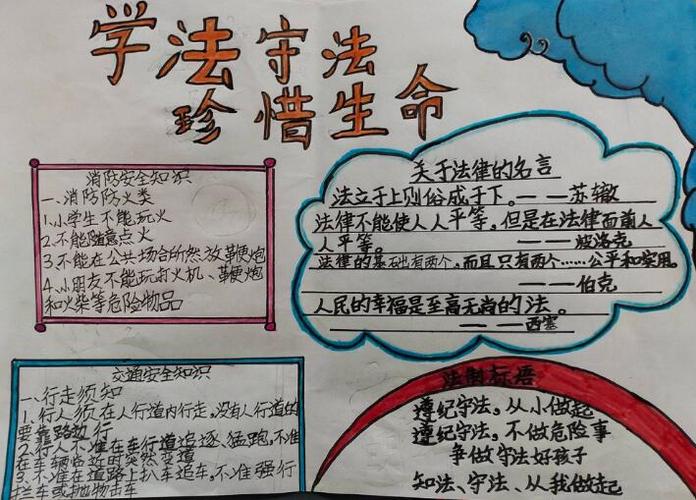 学法守法
珍惜生命
消防安全知识
一、消防防火类
1.小学生不能玩火
2.不能随意点火
3.不能在公共场合所然放鞭炮
4.小朋友不能玩打火机、鞭炮
和火柴等危险物品
关于法律的名言
法立于上则俗成于下。——苏辙
法律不能使人人平等,但是在法律面前人
人平等。
——波洛克
法律的基础有两个,而且只有两个……公平和实用。
——伯克
人民的幸福是至高无尚的法。
——西塞
交通安全知识
一、行走须知
1.行人须在人行道内行走,没有人行道的
要靠路边行
2.行人不准在车行道追逐、猛跑,不准
在车辆临近时突然
3.不准在道路上扒车追车,不准强行
拦车或抛物击车
法制标语
遵纪守法,从小做起
遵纪守法,不做危险事
争做守法好孩子
知法、守法、从我做起